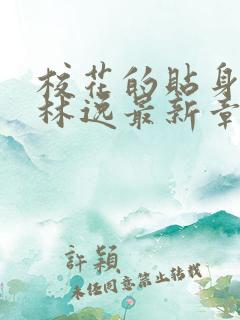 校花的贴身
林逸最新章
許穎
未经同意禁止转载